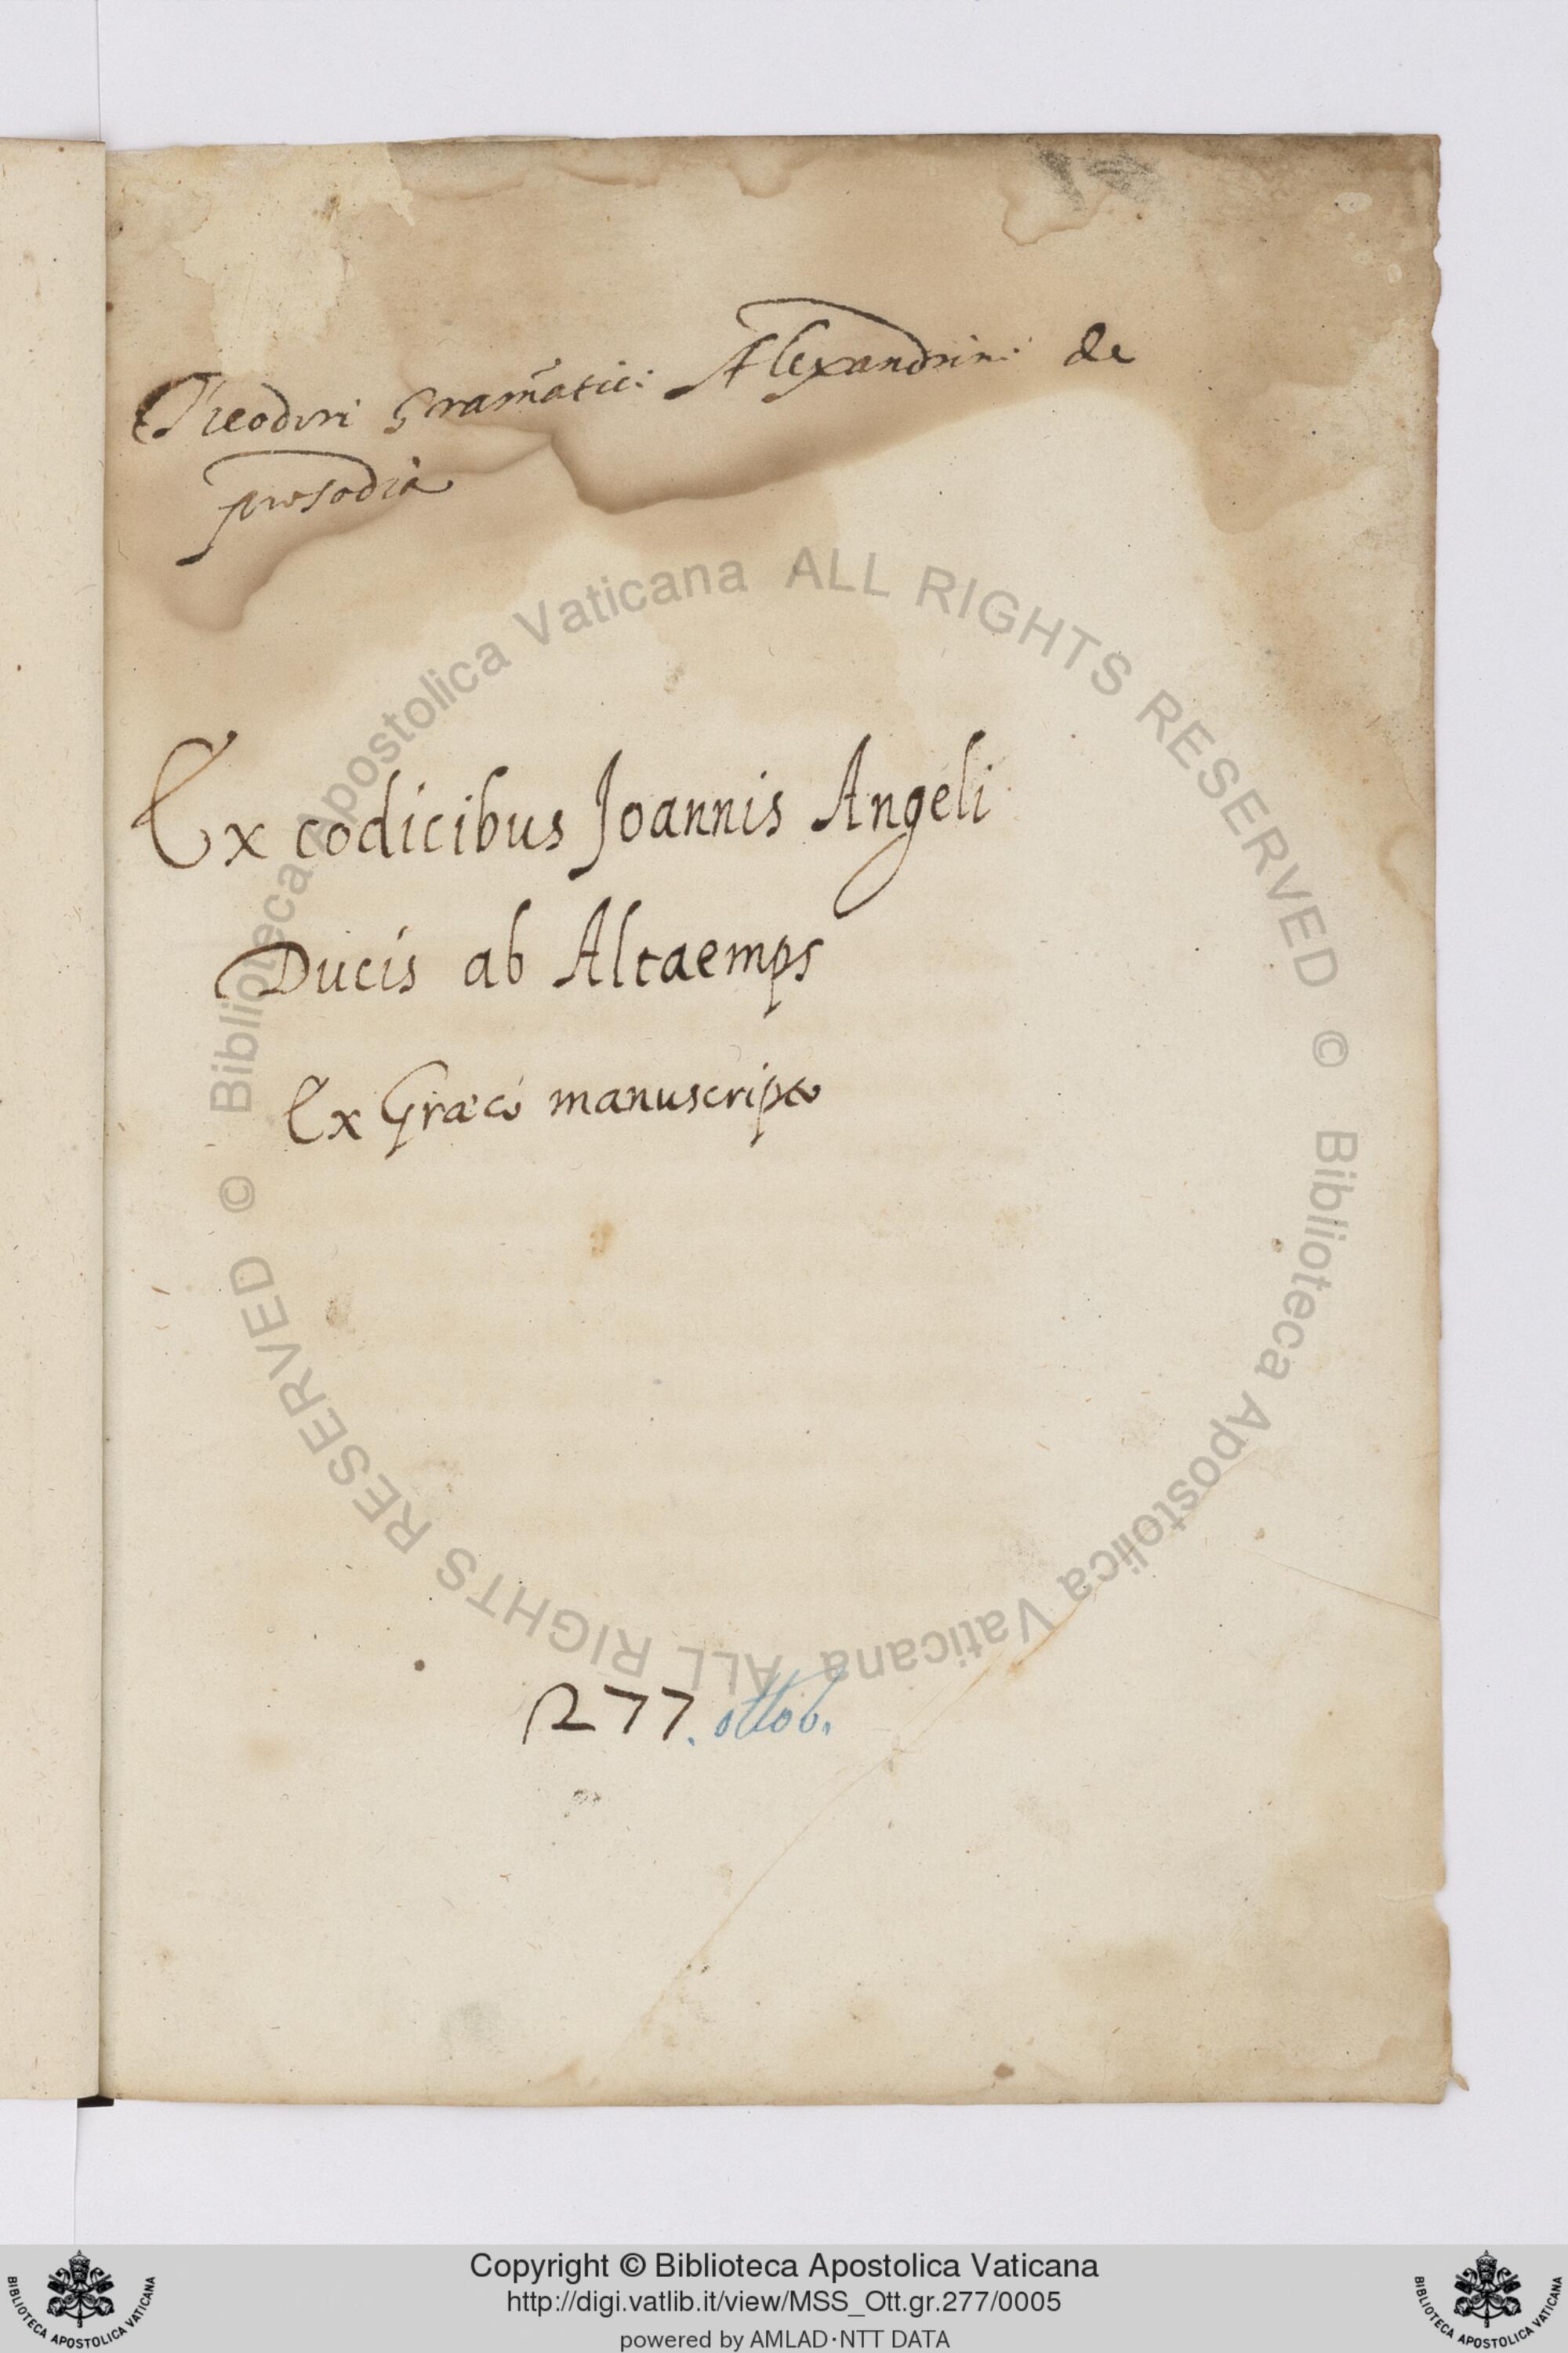 Theodori Gram̃atici Alexandrini de
prosodia
Ex codicibus Joannis Angeli
Ducis ab Altaemps
Ex Græco manuscripto
277. ottob.
© Biblioteca Apostolica Vaticana ALL RIGHTS RESERVED © Biblioteca Apostolica Vaticana ALL RIGHTS RESERVED
Copyright © Biblioteca Apostolica Vaticana
http://digi.vatlib.it/view/MSS_Ott.gr.277/0005
powered by AMLAD·NTT DATA
BIBLIOTECA APOSTOLICA VATICANA
BIBLIOTECA APOSTOLICA VATICANA